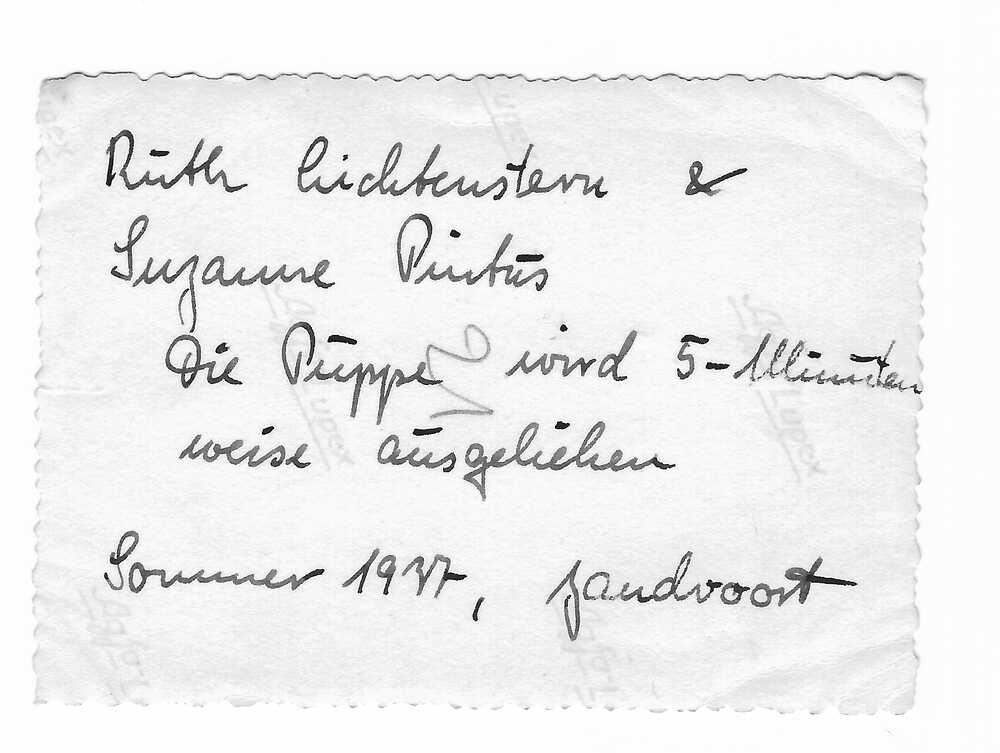 Ruth Lichtenstern &
Suzanne Pintus
Die Puppe wird 5-Minuten
weise ausgeliehen
Sommer 1937, Zandvoort
Agfa-Lupex
Agfa-Lupex